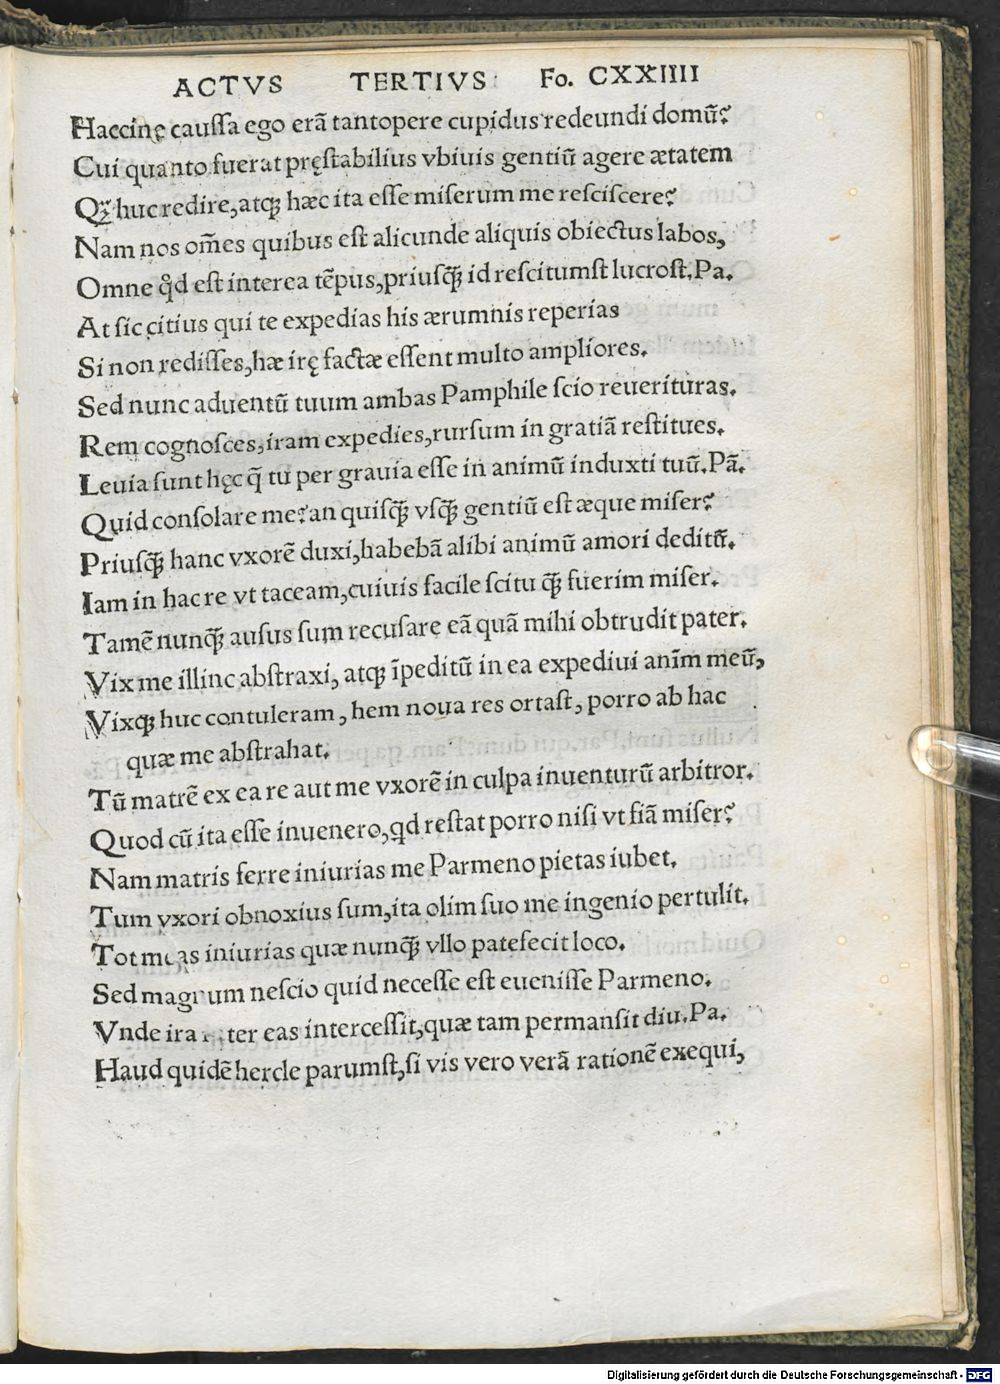 ACTVS TERTIVS Fo. CXXIIII
Haccinę caussa ego erã tantopere cupidus redeundi domũ?
Cui quanto fuerat pręstabilius vbiuis gentiũ agere ætatem
Qꝫ huc redire, atqꝫ hæc ita esse miserum me resciscere?
Nam nos om̃es quibus est alicunde aliquis obiectus labos,
Omne qd̃ est interea tẽpus, priusqꝫ̃ id rescitumst lucrost. Pa.
At sic citius qui te expedias his ærumnis reperias
Si non redisses, hæ irę factæ essent multo ampliores.
Sed nunc aduentũ tuum ambas Pamphile scio reuerituras.
Rem cognosces, iram expedies, rursum in gratiã restitues.
Leuia sunt hęc q̃ tu per grauia esse in animũ induxti tuũ. Pã.
Quid consolare me? an quisqꝫ̃ vsqꝫ̃ gentiũ est æque miser?
Priusqꝫ̃ hanc vxorẽ duxi, habebã alibi animũ amori deditũ.
Iam in hac re vt taceam, cuiuis facile scitu qꝫ̃ fuerim miser.
Tamẽ nunqꝫ̃ ausus sum recusare eã quã mihi obtrudit pater.
Vix me illinc abstraxi, atqꝫ ĩpeditũ in ea expediui anim̃ meũ,
Vixqꝫ huc contuleram, hem noua res ortast, porro ab hac
quæ me abstrahat.
Tũ matrẽ ex ea re aut me vxorẽ in culpa inuenturũ arbitror.
Quod cũ ita esse inuenero, qd restat porro nisi vt fiã miser?
Nam matris ferre iniurias me Parmeno pietas iubet.
Tum vxori obnoxius sum, ita olim suo me ingenio pertulit.
Tot meas iniurias quæ nunqꝫ̃ vllo patefecit loco.
Sed magnum nescio quid necesse est euenisse Parmeno.
Vnde ira inter eas intercessit, quæ tam permansit diu. Pa.
Haud quidẽ hercle parumst, si vis vero verã rationẽ exequi,
Digitalisierung gefördert durch die Deutsche Forschungsgemeinschaft - DFG